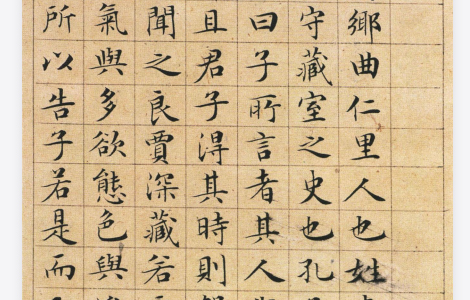 鄉曲仁里人也姓
守藏室之史也孔
曰子所言者其人
且君子得其時則
聞之良賈深藏若
氣與多欲態色與
所以告子若是而